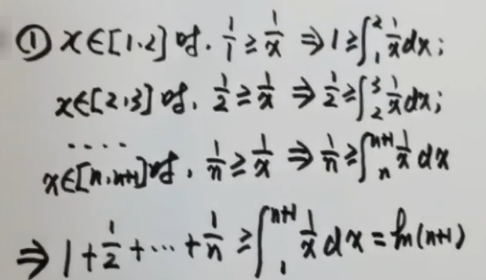 ① x∈[1,2]时, 1/1 ≥ 1/x ⇒ 1 ≥ ∫₁² 1/x dx;
x∈[2,3]时, 1/2 ≥ 1/x ⇒ 1/2 ≥ ∫₂³ 1/x dx;
....
x∈[n,n+1]时, 1/n ≥ 1/x ⇒ 1/n ≥ ∫ₙⁿ⁺¹ 1/x dx
⇒ 1 + 1/2 + ⋯ + 1/n ≥ ∫₁ⁿ⁺¹ 1/x dx = ln(n+1)